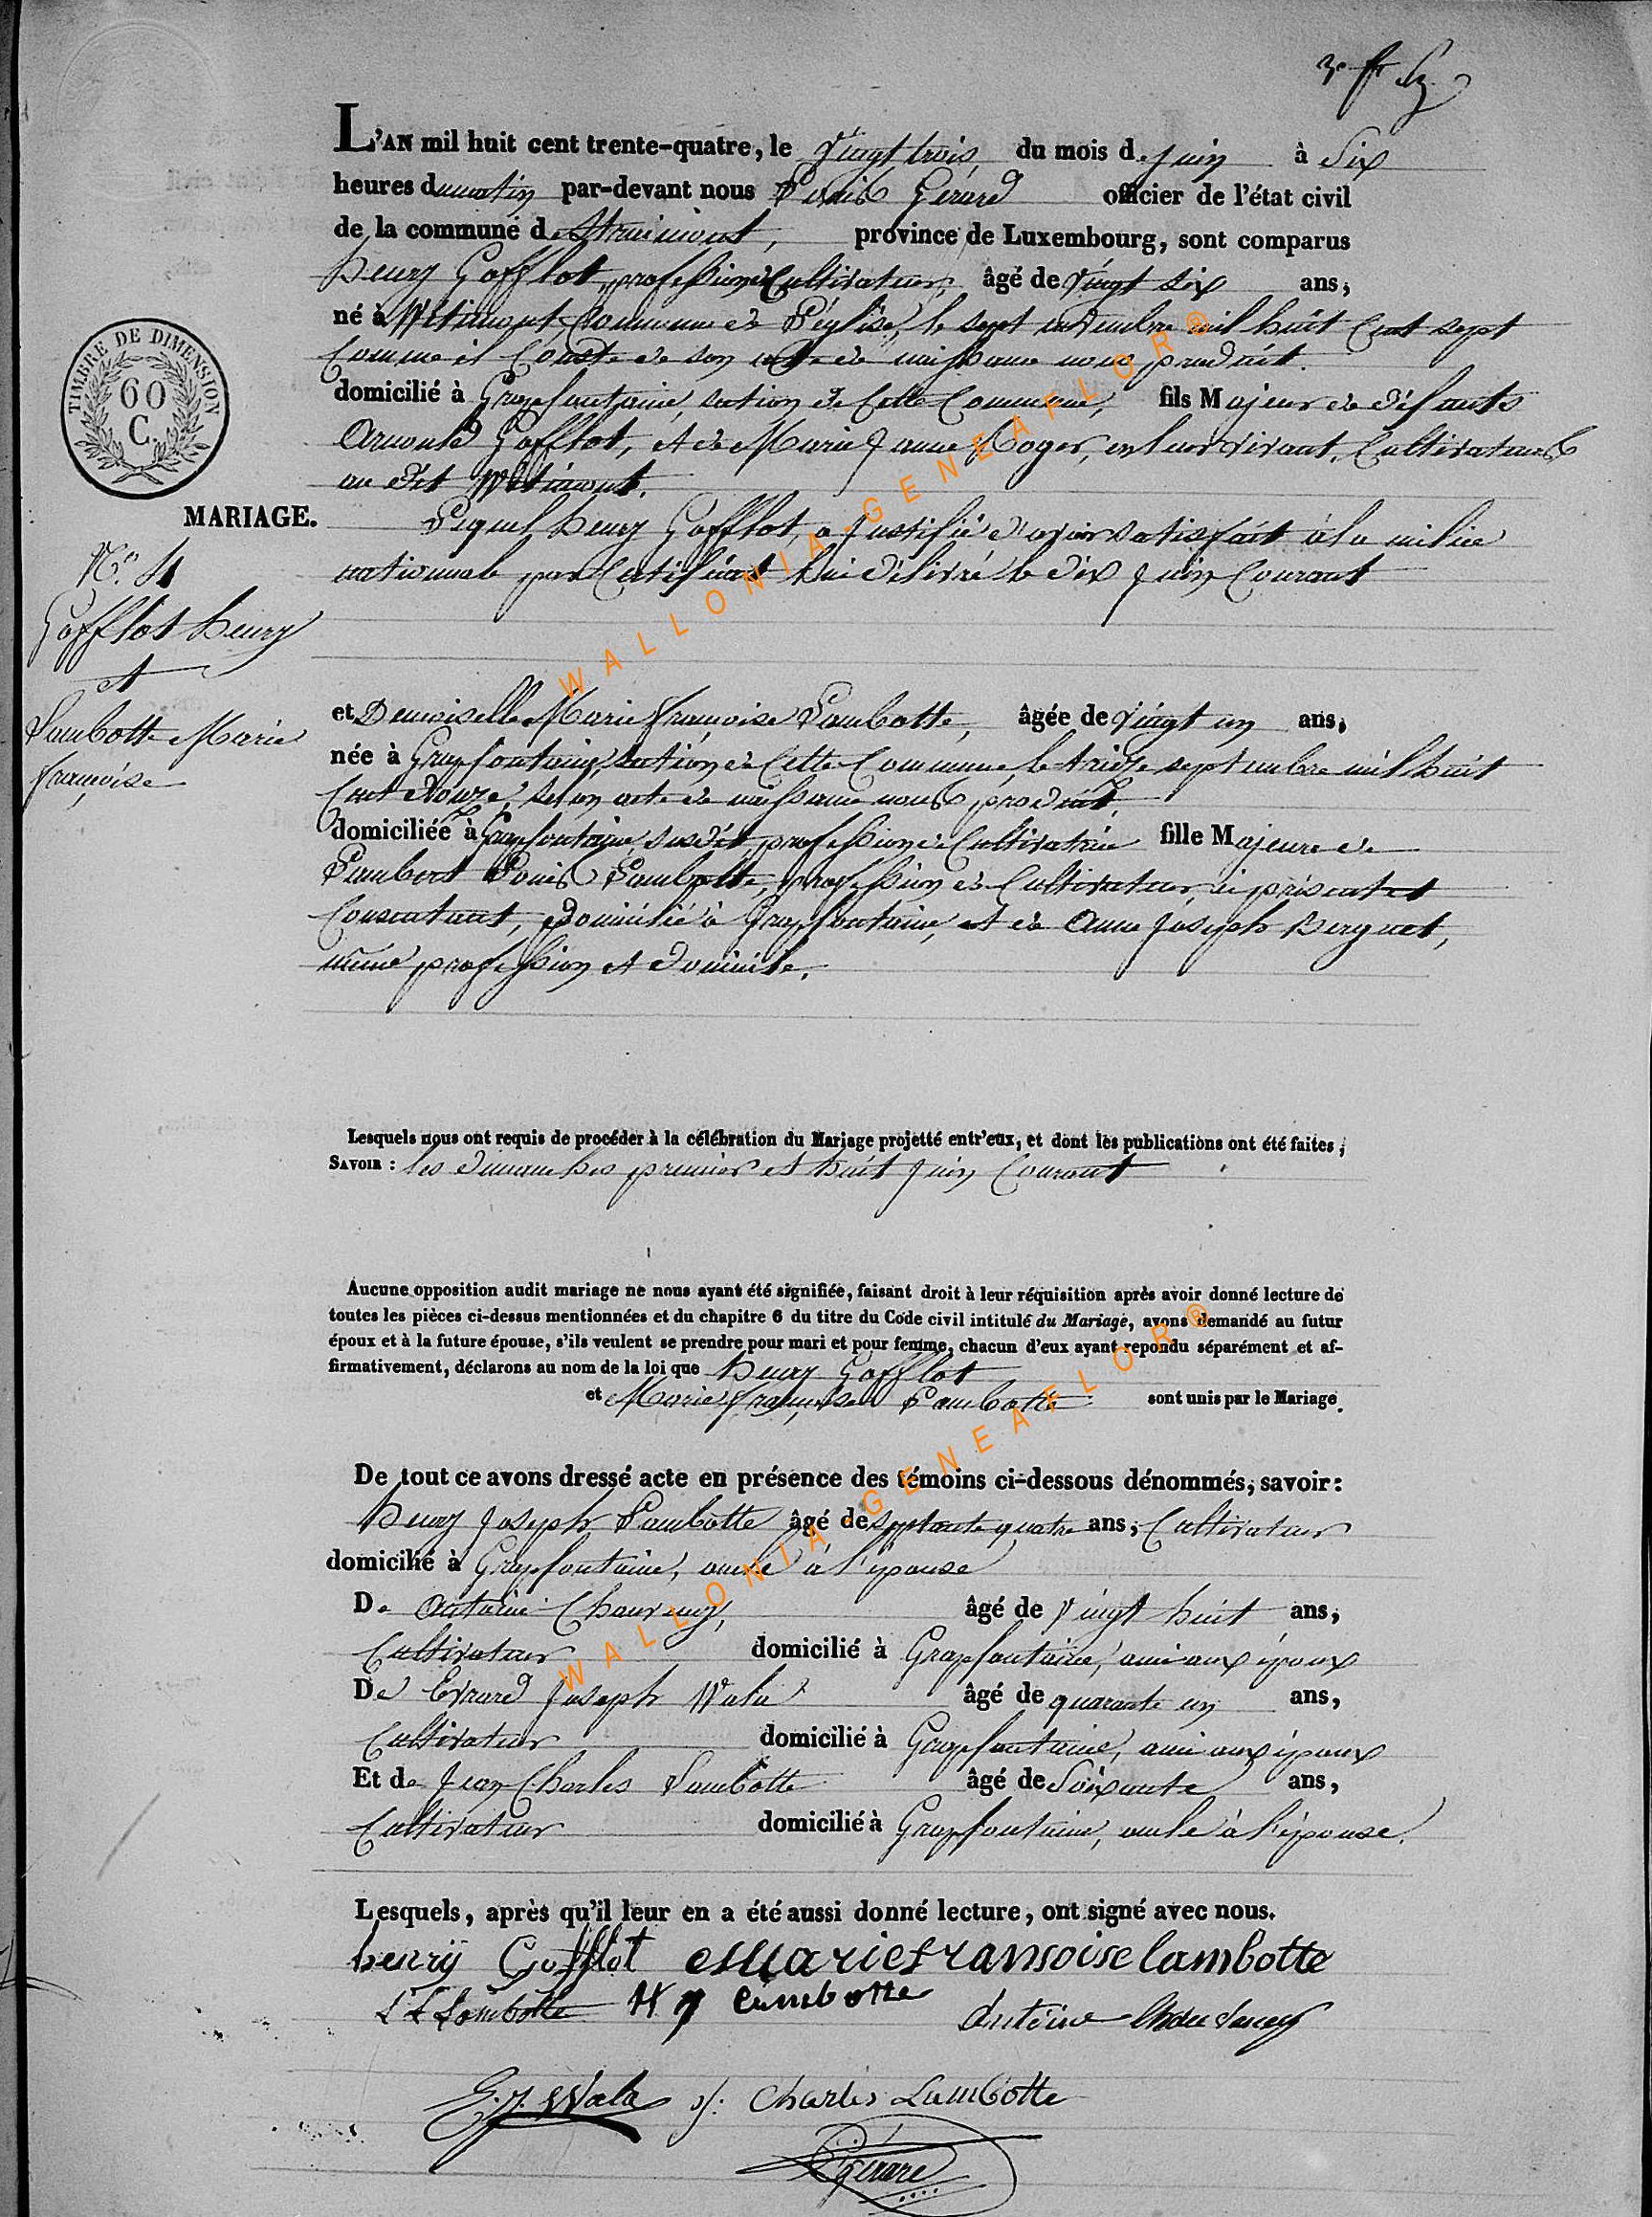 L'AN mil huit cent trente-quatre, le vingt trois du mois de juin à Six
heures du matin par-devant nous Louis Gérard officier de l'état civil
de la commune de Straimont, province de Luxembourg, sont comparus
henry Gofflot, profession de Cultivateur, âgé de vingt six ans,
né à Witimont, Commune de Léglise, le sept mil huit Cent sept
Comme il Conste de son acte de naissance nous produit.
domicilié à Grapfontaine, section de Cette Commune, fils Majeur de défunts
Arnould Gofflot, et de Marie Jeanne Roger, en leur vivant, Cultivateurs
au dit Witimont.
TIMBRE DE DIMENSION
60
C.
MARIAGE.
Lequel henry Gofflot, a justifié d'avoir satisfait à la milice
nationale par Certificat lui délivré le dix Juin Courant
N.º 4
Gofflot henry
et
Lambotte Marie
françoise
et Demoiselle Marie françoise Lambotte, âgée de vingt un ans,
née à Grapfontaine, section de Cette Commune, le treize septembre mil huit
Cent Douze, selon acte de naissance nous produit,
domiciliée à Grapfontaine, susdit, profession de Cultivatrice fille Majeure de
Lambert Louis Lambotte, profession de Cultivateur, ci présent et
Consentant, domicilié à Grapfontaine, et de Anne Joseph
même profession et domicile.
Lesquels nous ont requis de procéder à la célébration du Mariage projetté entr'eux, et dont les publications ont été faites;
SAVOIR : les dimanches premier et huit Juin Courant
Aucune opposition audit mariage ne nous ayant été signifiée, faisant droit à leur réquisition après avoir donné lecture de
toutes les pièces ci-dessus mentionnées et du chapitre 6 du titre du Code civil intitulé du Mariage, avons demandé au futur
époux et à la future épouse, s'ils veulent se prendre pour mari et pour femme, chacun d'eux ayant repondu séparément et af-
firmativement, déclarons au nom de la loi que henry Gofflot
et Marie françoise Lambotte sont unis par le Mariage.
De tout ce avons dressé acte en présence des témoins ci-dessous dénommés, savoir:
henry Joseph Lambotte âgé de septante quatre ans, Cultivateur
domicilié à Grapfontaine, oncle à l'épouse
De Antoine Chauvency, âgé de vingt huit ans,
Cultivateur domicilié à Grapfontaine, ami aux époux
De Evrard Joseph Wala âgé de quarante un ans,
Cultivateur domicilié à Grapfontaine, ami aux époux
Et de Jean Charles Lambotte âgé de Soixante ans,
Cultivateur domicilié à Grapfontaine, oncle à l'épouse.
Lesquels, après qu'il leur en a été aussi donné lecture, ont signé avec nous.
henrÿ Gofflot Marie fransoise lambotte
L L Lambotte H J Lambotte Antoine Chauvency
E. J. Wala J: Charles Lambotte
L Gérard
WALLONIA-GENEAFLOR®
WALLONIA-GENEAFLOR®